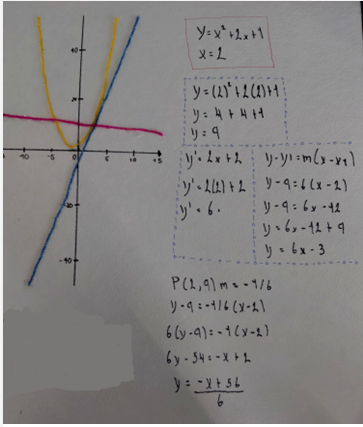 y = x² + 2x + 1
x = 2
y = (2)² + 2(2) + 1
y = 4 + 4 + 1
y = 9
y' = 2x + 2
y' = 2(2) + 2
y' = 6.
y - y1 = m(x - x1)
y - 9 = 6(x - 2)
y - 9 = 6x - 12
y = 6x - 12 + 9
y = 6x - 3
P(2,9) m = -1/6
y - 9 = -1/6 (x - 2)
6(y - 9) = -1(x - 2)
6y - 54 = -x + 2
y = -x + 56
6
40
-10
0
10
-20